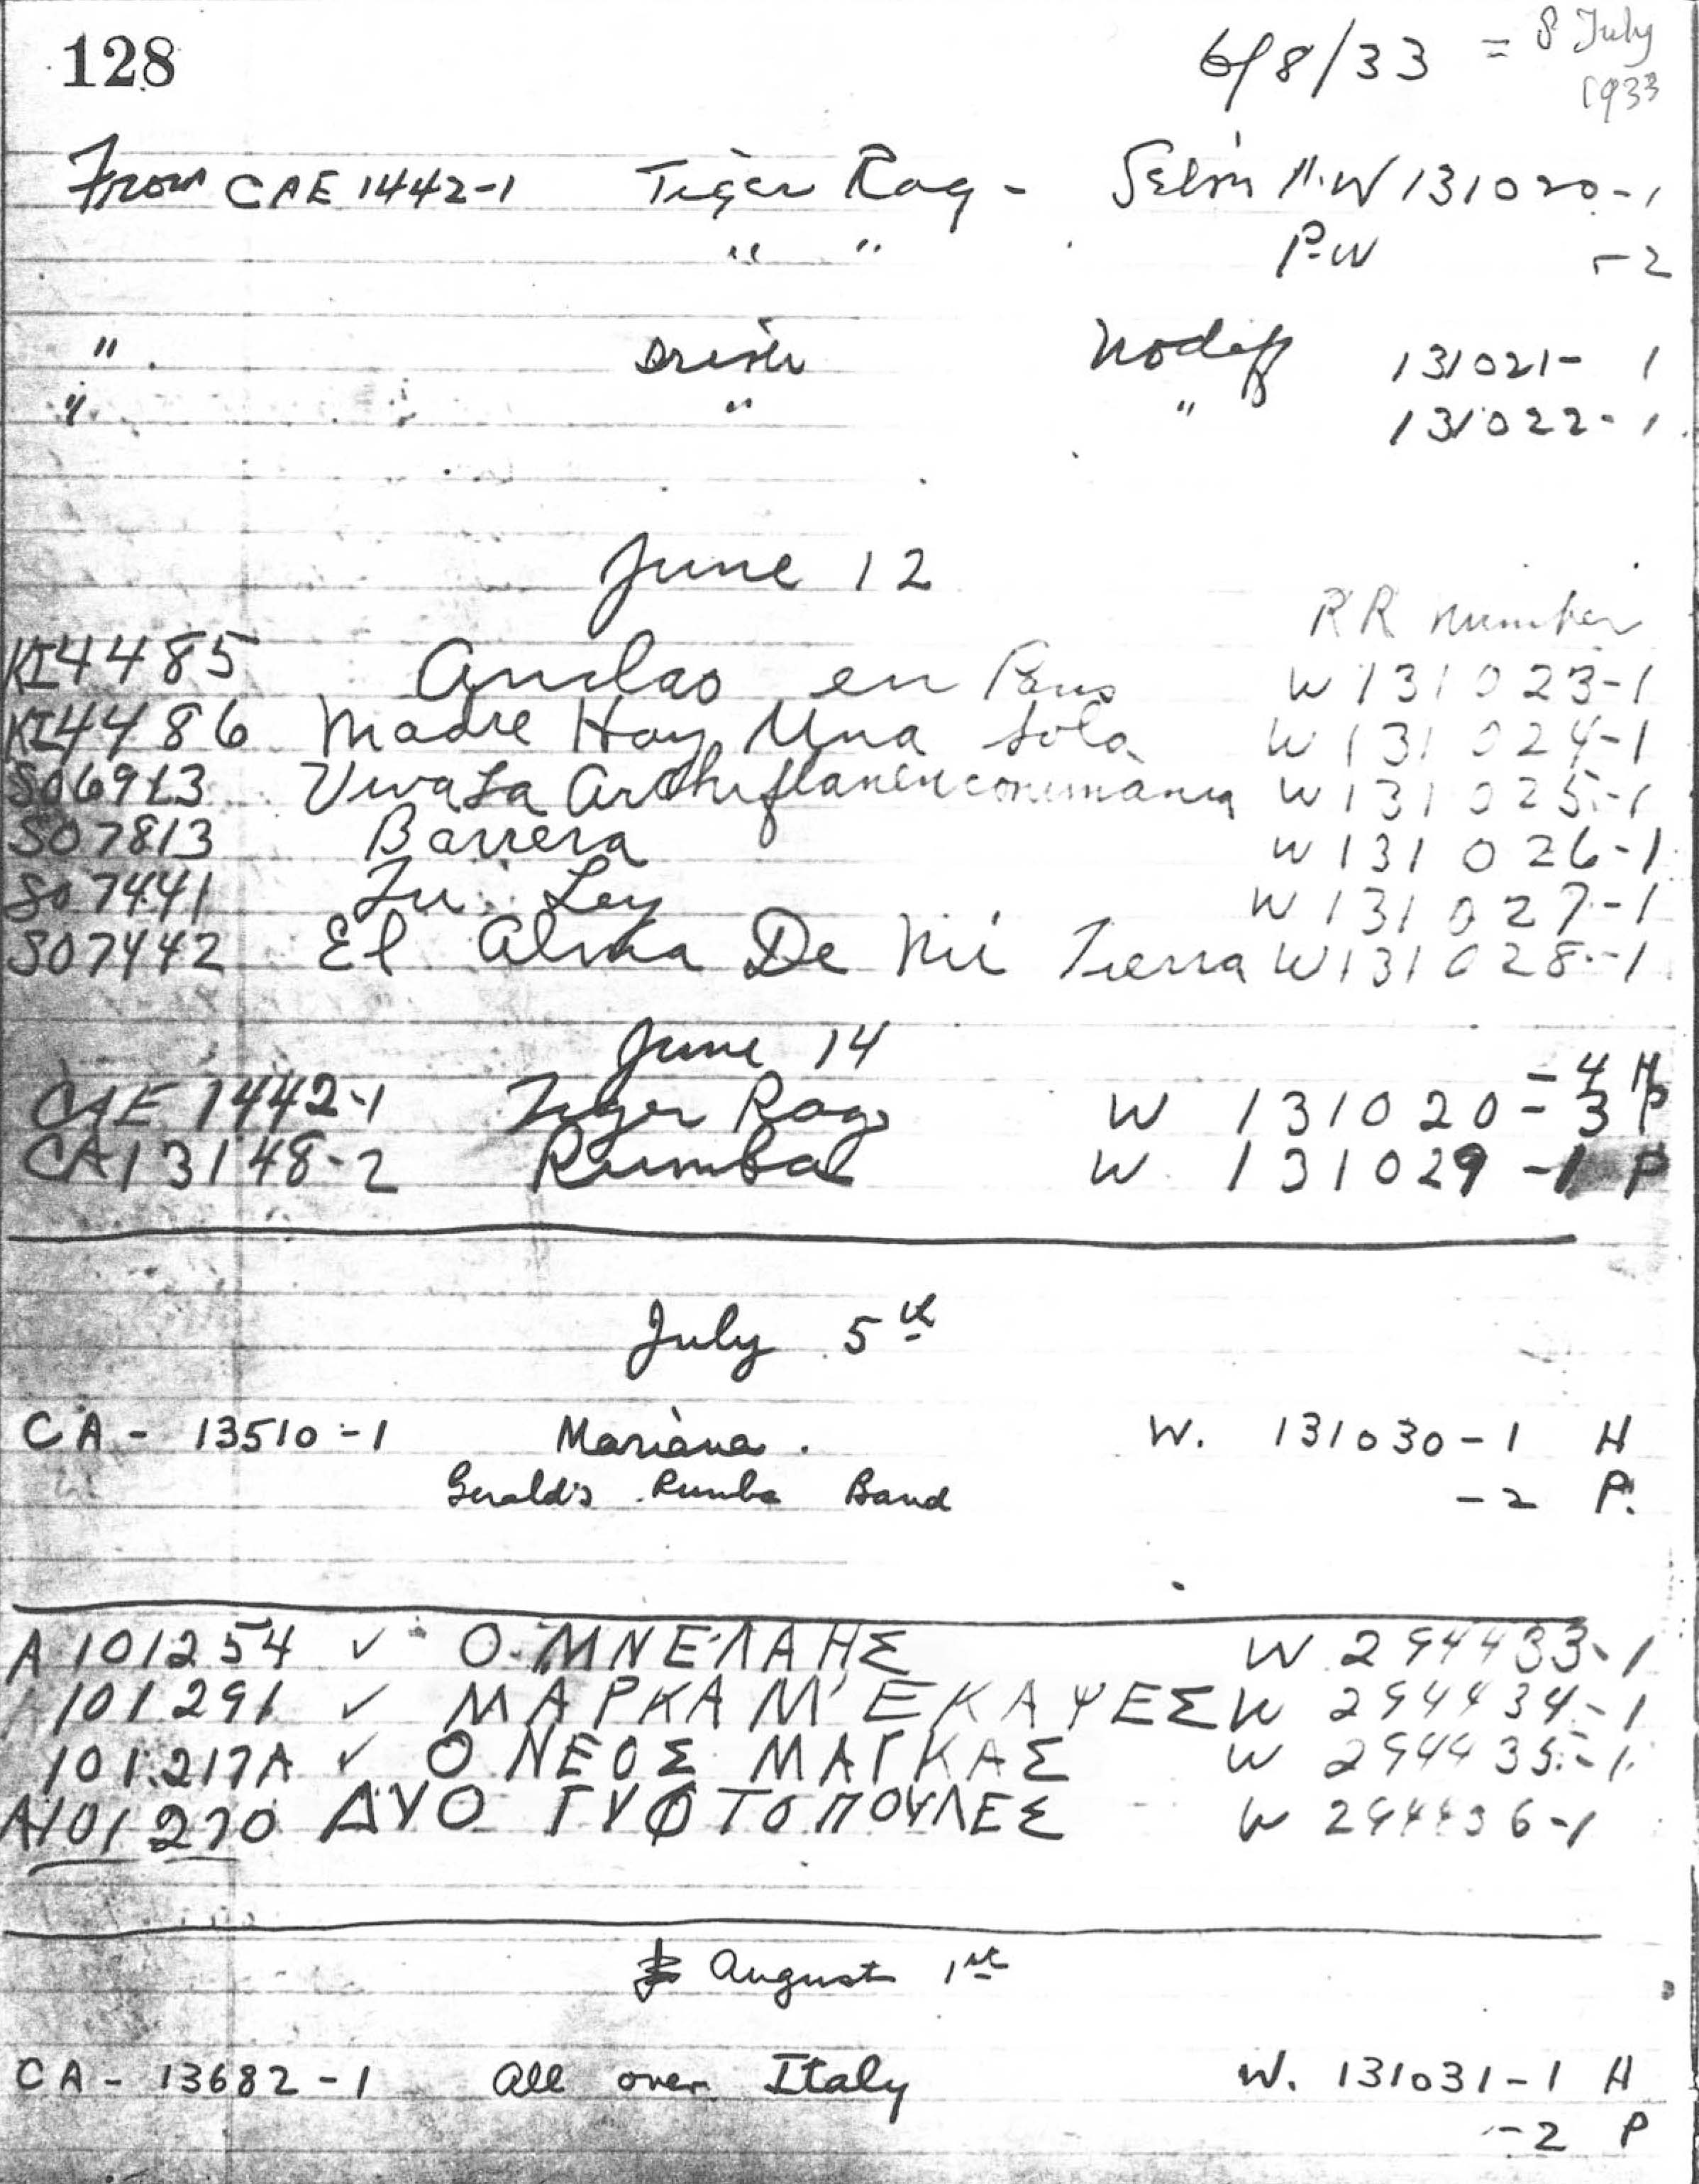 128
6/8/33 = 8 July
1933
From CAE 1442-1 Tiger Rag - H.W 131020-1
" " P-W -2
" . Irish 131021- 1
" " " 131022-1
June 12
RR number
KI4485 en W131023-1
KI4486 Madre Hay Una Sola W131024-1
SO6913 Viva La W131025-1
SO7813 Barrera W131026-1
SO7441 Tu Ley W131027-1
SO7442 El Alma De Mi Tierra W131028-1
June 14
-4 H
CAE 1442-1 Tiger Rag W 131020-3 P
CA13148-2 Rumba W 131029-1 P
July 5th
CA-13510-1 Mariana. W. 131030-1 H
Geraldo's Rumba Band -2 P.
A101254 ✓ Ο ΜΝΕΛΛΗΣ W 294433-1
101291 ✓ ΜΑΡΚΑ Μ' ΕΚΑΨΕΣ W 294434-1
101217A ✓ Ο ΝΕΟΣ ΜΑΓΚΑΣ W 294435-1
A101270 ΔΥΟ ΓΥΦΤΟΠΟΥΛΕΣ W 294436-1
August 1st
CA-13682-1 All over Italy W. 131031-1 H
-2 P